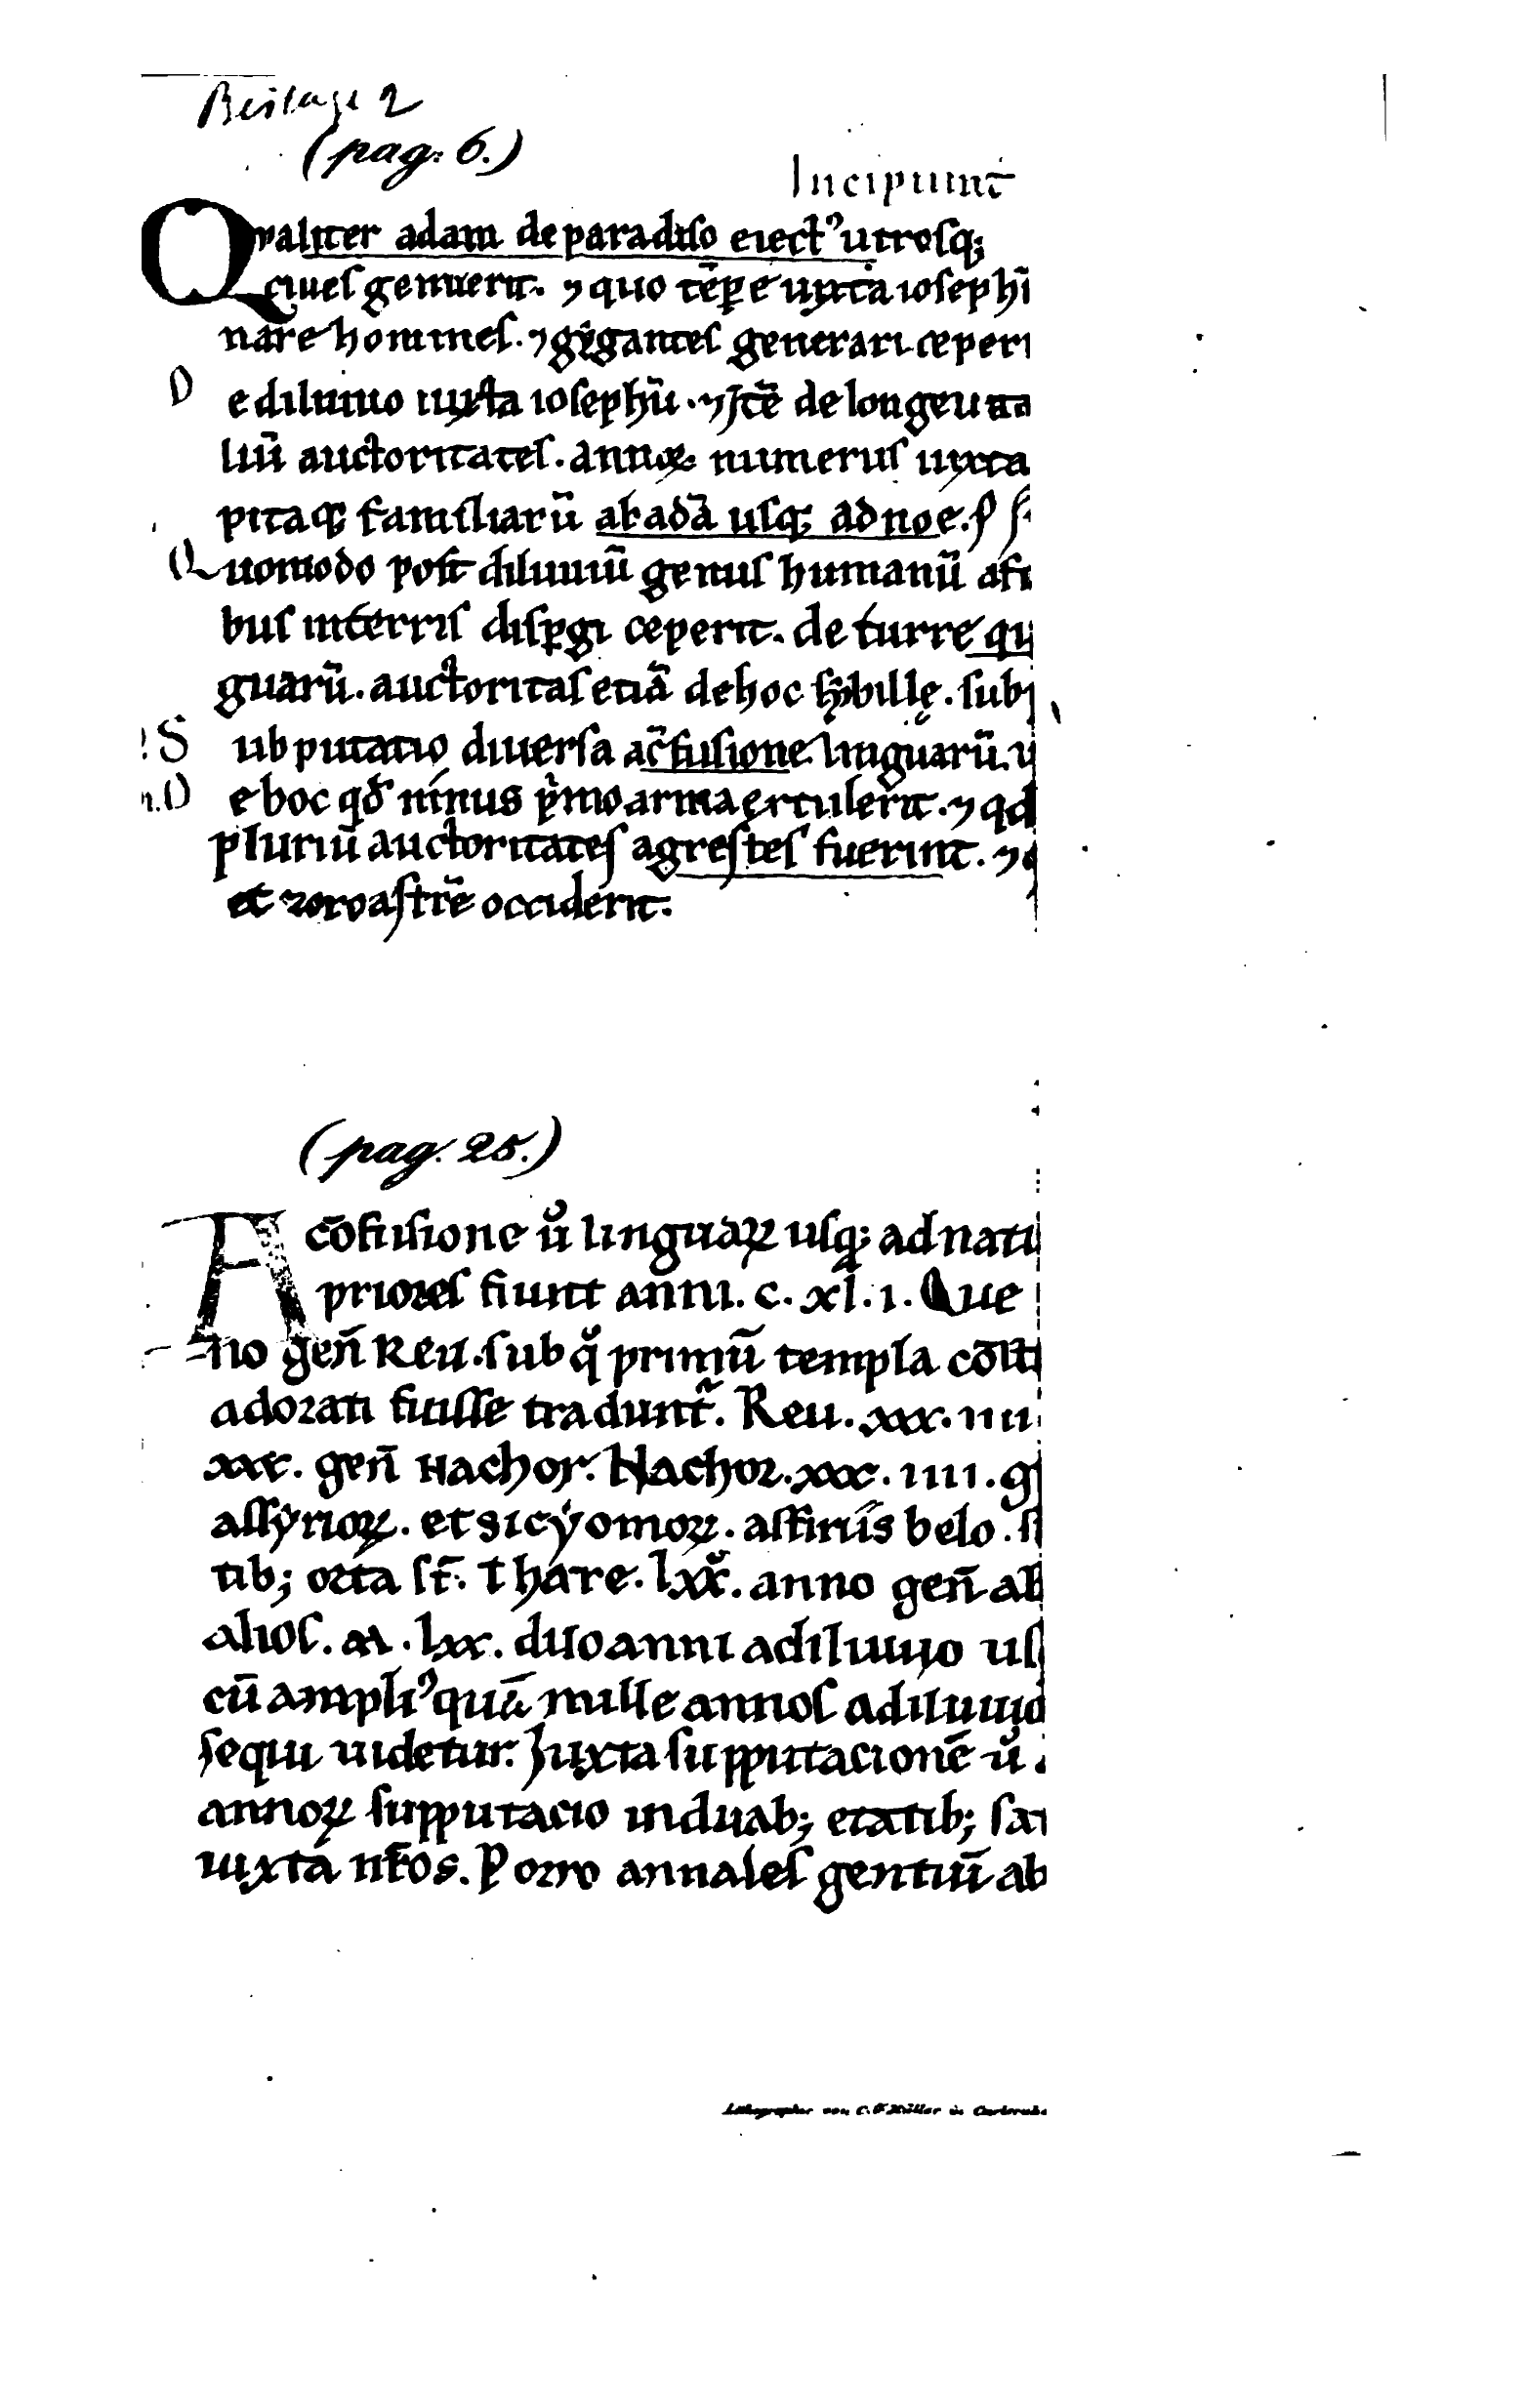 Beilage 2
(pag. 6.)
Incipiunt̄
Qvaliter adam de paradiso eiect⁹ utrosq;
ciues genuerit. ⁊ quo tēpe iuxta iosephū
nare homines. ⁊ gygantes generari ceperi
D e diluuio iuxta iosephū. ⁊ itē de longeuita
liū auctoritates. annoꝝ numerus iuxta
pitaq; familiarū ab adā usq; ad noe. p s.
Quomodo post diluuiū genus humanū a fi
bus in terris dispgi ceperit. de turre qu
guarū. auctoritas etiā de hoc sybille. sub
S ubputatio diuersa a c̄fusione linguarū. u
n. D e hoc qd ninus pmo arma extulerit. ⁊ qd
pluriū auctoritates agrestes fuerint. ⁊
et zoroastrē occiderit.
(pag. 25.)
A cōfusione ů linguaꝝ usq; ad nati
priores fiunt anni. c. xl. i. Que
no geñ Reu. sub q̊ primū templa cōst
adorati fuisse tradunt̃. Reu. xxx. iiii
xxx. geñ Nachor. Nachor. xxx. iiii. g
assyrioꝝ. et sicyonioꝝ. assiriis belo. s
tib; orta st̄. Thare. lxx̊. anno geñ ab
alios. M. lxx. duo anni a diluuio us
cū ampli⁹ quā mille annos a diluuio
sequi uidetur. Iuxta supputacionē ů.
annoꝝ supputacio in duab; etatib; sa
iuxta nr̄os. Porro annales gentiū ab
Lithographie von C. F. Müller in Carlsruhe